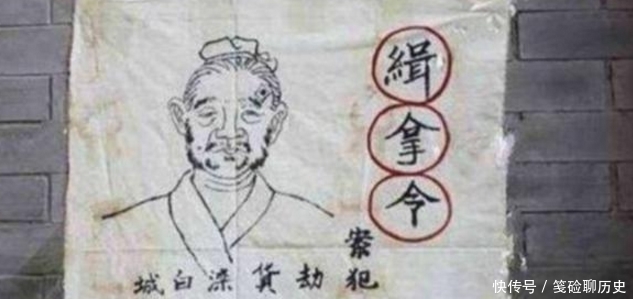 緝拿令
案犯
劫貨深白城
快传号 / 笺硷聊历史